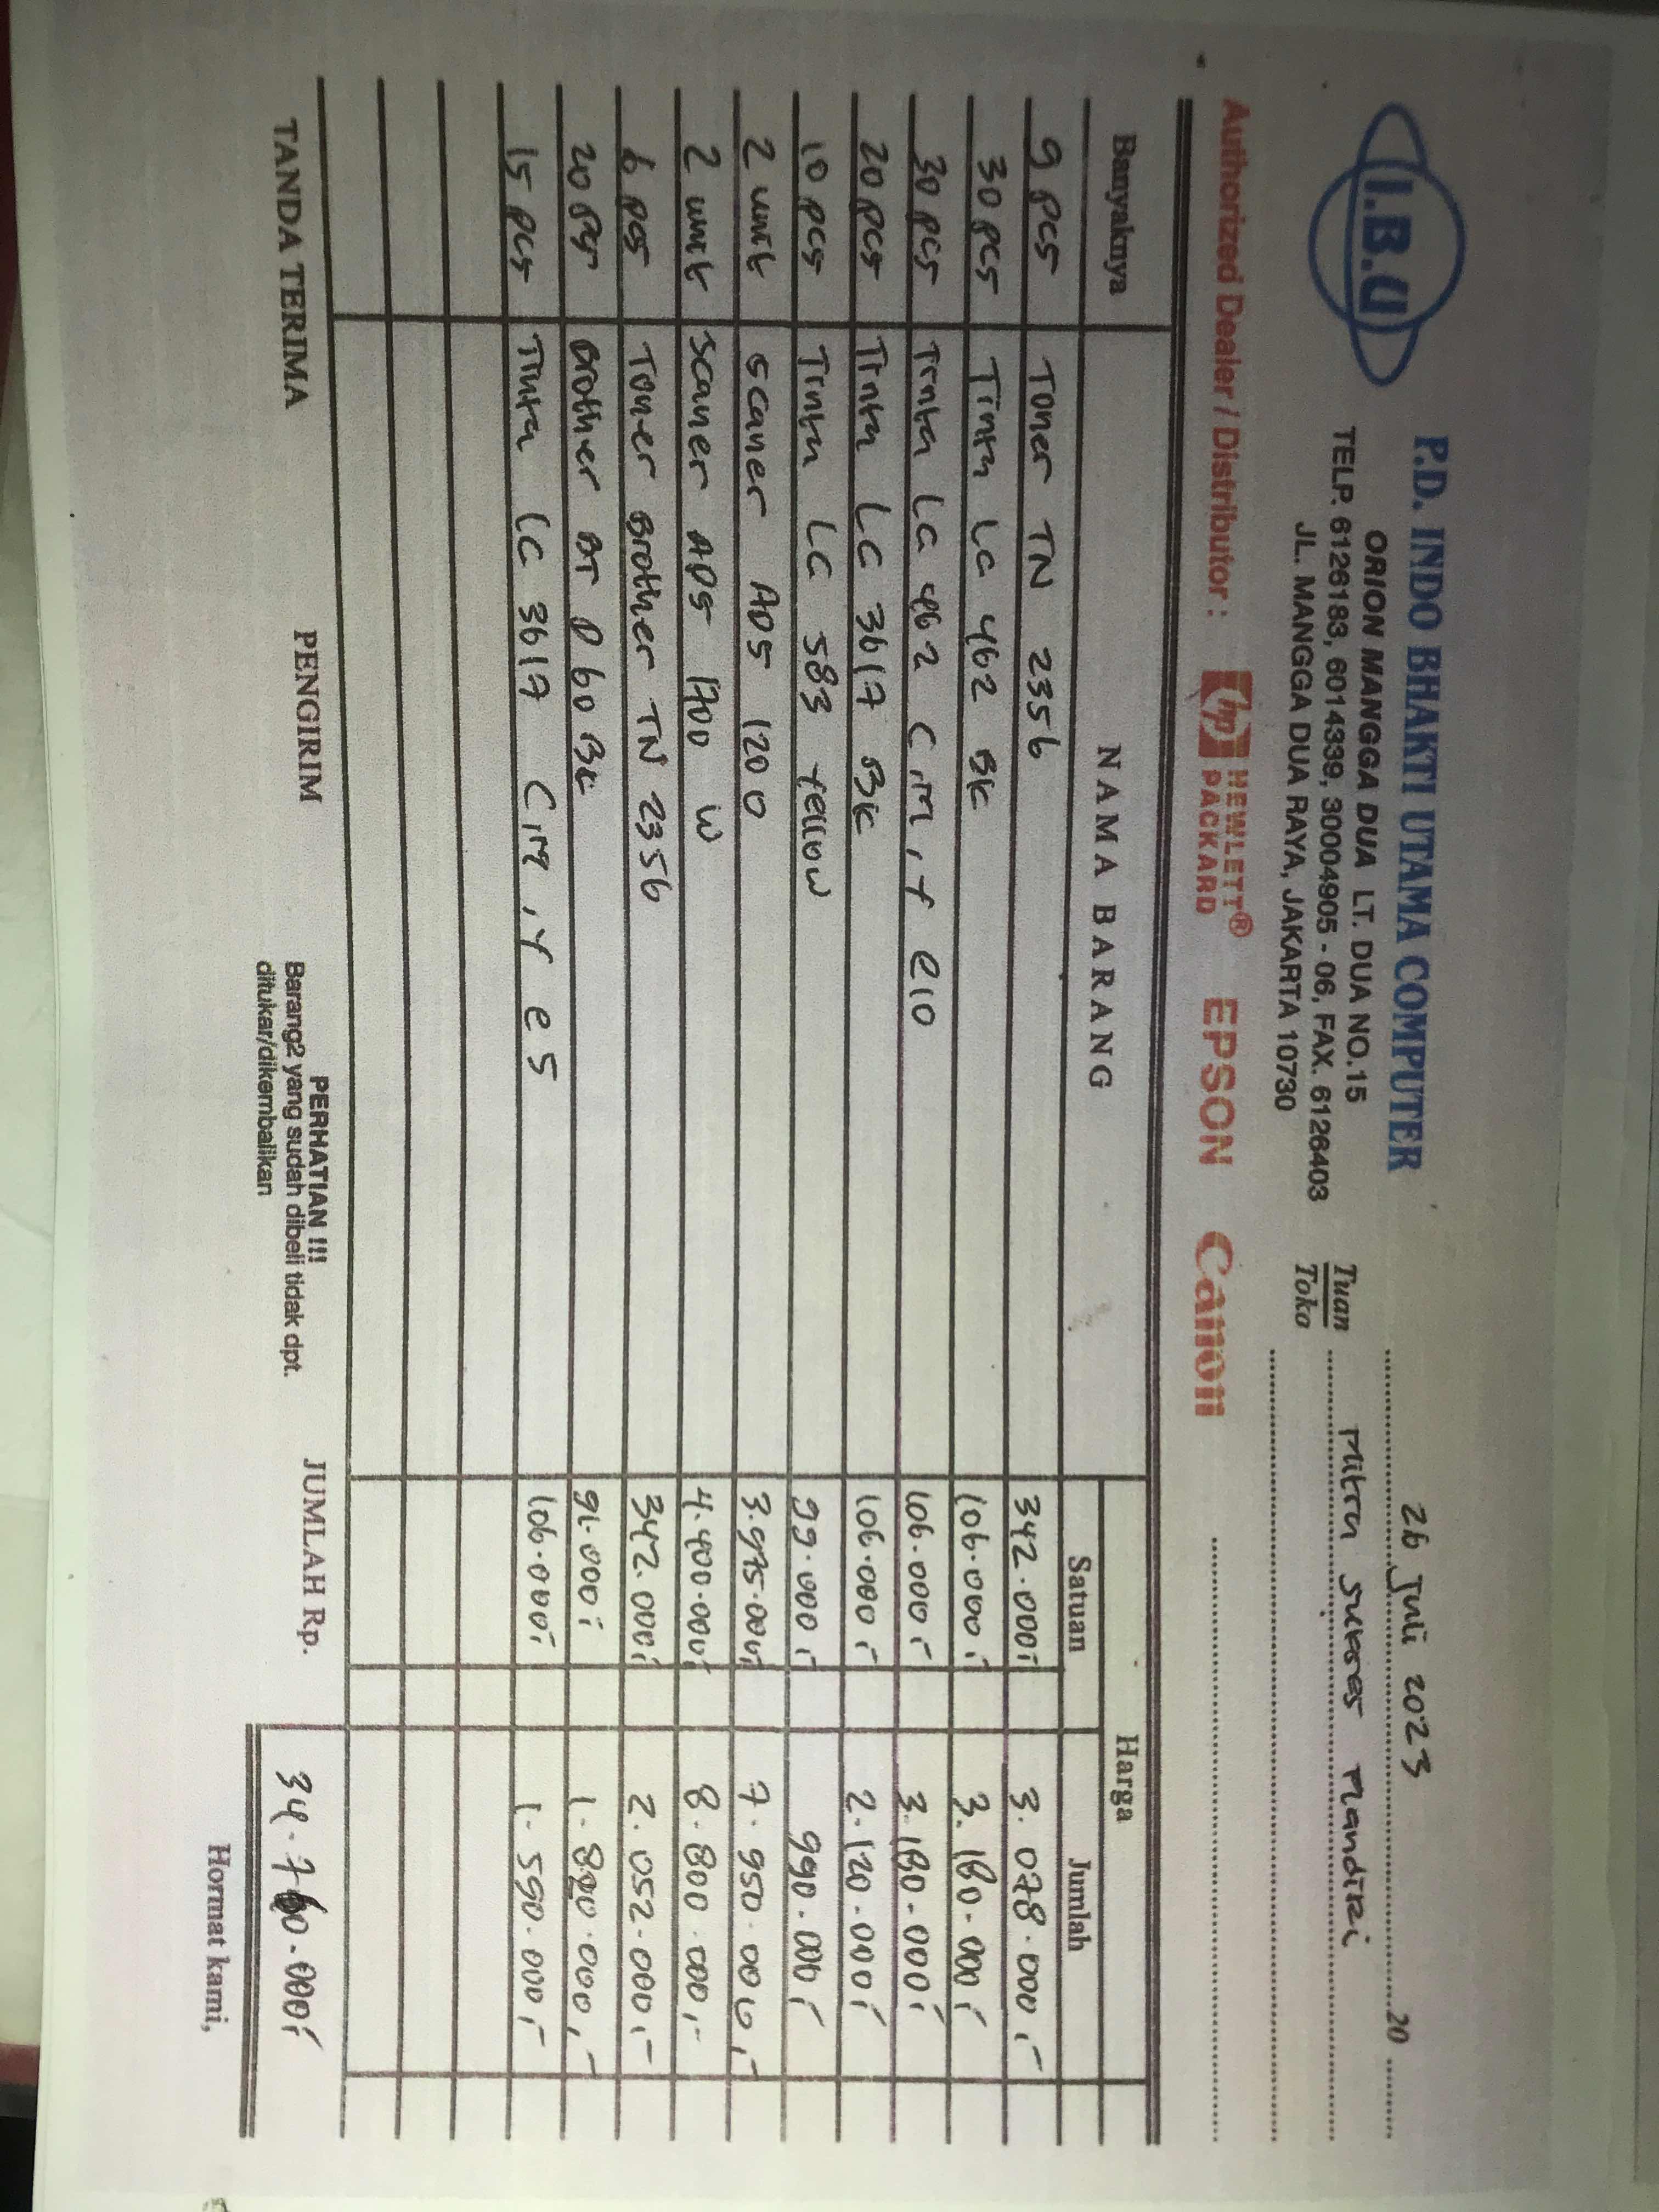 I.B.U
P.D. INDO BHAKTI UTAMA COMPUTER
ORION MANGGA DUA LT. DUA NO.15
TELP. 6126183, 6014339, 30004905 - 06, FAX. 6126403
JL. MANGGA DUA RAYA, JAKARTA 10730
26 Juli 2023 20
Tuan
Toko
Mitra sukses Mandiri
Authorized Dealer / Distributor : hp HEWLETT® PACKARD EPSON Canon
Banyaknya NAMA BARANG Harga
Satuan Jumlah
9 pcs Toner TN 2356 342.000,- 3.078.000,-
30 pcs Tinta LC 462 BK 106.000,- 3.180.000,-
30 pcs Tinta LC 462 C,M,Y @10 106.000,- 3.180.000,-
20 pcs Tinta LC 3617 BK 106.000,- 2.120.000,-
10 pcs Tinta LC 583 Yellow 99.000,- 990.000,-
2 unit scaner ADS 1200 3.975.000,- 7.950.000,-
2 unit scaner ADS 1700 W 4.400.000,- 8.800.000,-
6 pcs Toner Brother TN 2356 342.000,- 2.052.000,-
20 pcs Brother BT D 60 BK 91.000,- 1.820.000,-
15 pcs Tinta LC 3617 C,M,Y @ 5 106.000,- 1.590.000,-
TANDA TERIMA PENGIRIM
PERHATIAN !!!
Barang2 yang sudah dibeli tidak dpt.
ditukar/dikembalikan
JUMLAH Rp. 34.760.000,-
Hormat kami,